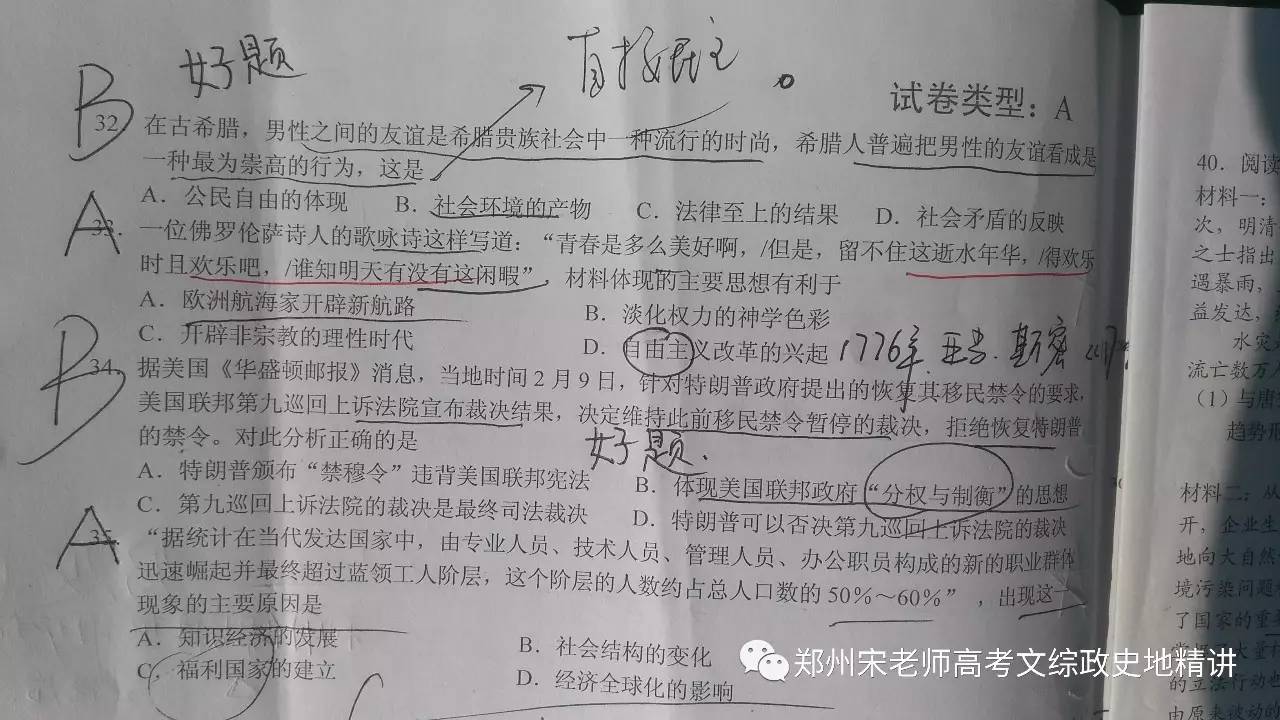 好题
直接民主
试卷类型：A
B
32 在古希腊，男性之间的友谊是希腊贵族社会中一种流行的时尚，希腊人普遍把男性的友谊看成是
一种最为崇高的行为，这是
A．公民自由的体现 B．社会环境的产物 C．法律至上的结果 D．社会矛盾的反映
A
33．一位佛罗伦萨诗人的歌咏诗这样写道：“青春是多么美好啊，/但是，留不住这逝水年华，/得欢乐
时且欢乐吧，/谁知明天有没有这闲暇”，材料体现的主要思想有利于
A．欧洲航海家开辟新航路 B．淡化权力的神学色彩
C．开辟非宗教的理性时代 D．自由主义改革的兴起
1776年 亚当．斯密
B
34．据美国《华盛顿邮报》消息，当地时间2月9日，针对特朗普政府提出的恢复其移民禁令的要求，
美国联邦第九巡回上诉法院宣布裁决结果，决定维持此前移民禁令暂停的裁决，拒绝恢复特朗普
的禁令。对此分析正确的是
好题．
A．特朗普颁布“禁穆令”违背美国联邦宪法 B．体现美国联邦政府“分权与制衡”的思想
C．第九巡回上诉法院的裁决是最终司法裁决 D．特朗普可以否决第九巡回上诉法院的裁决
A
“据统计在当代发达国家中，由专业人员、技术人员、管理人员、办公职员构成的新的职业群体
迅速崛起并最终超过蓝领工人阶层，这个阶层的人数约占总人口数的50%～60%”，出现这一
现象的主要原因是
A．知识经济的发展 B．社会结构的变化
C．福利国家的建立 D．经济全球化的影响
40．阅读
材料一：
次，明清
之士指出
遇暴雨，
益发达，
水灾
流亡数万
（1）与唐
趋势
材料二：从
开，企业生
地向大自然
境污染问题
了国家的重
大量
的立法行动也
由原来被动的
郑州宋老师高考文综政史地精讲